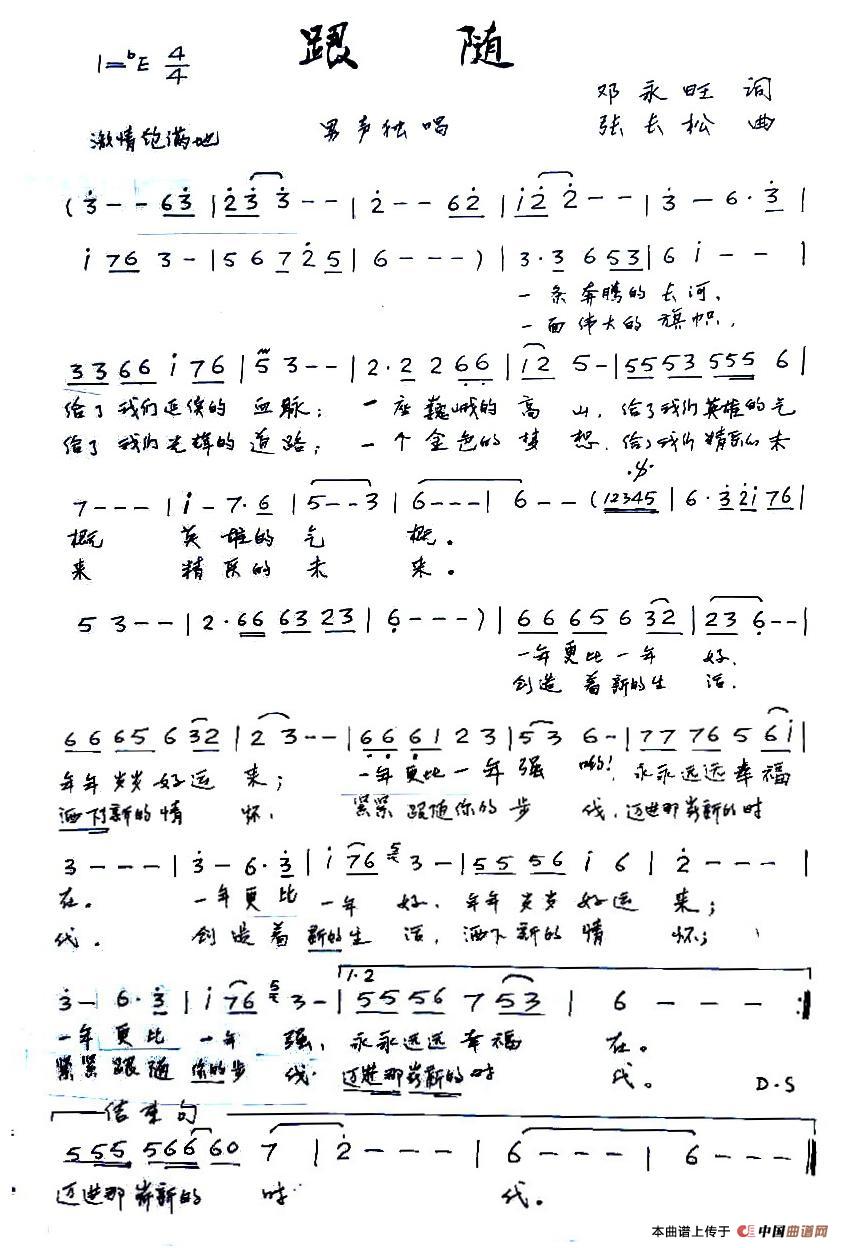 跟 随
1=♭E 4/4
邓永旺 词
激情饱满地 男声独唱 张长松 曲
(3--63|23 3--|2--62|12 2--|3-6·3|
i 76 3-|5 6 7 25|6---)|3·3 6 53|6 i--|
一条奔腾的长河,
一面伟大的旗帜,
33 66 i 76|5 3--|2·2 2 66|12 5-|5553 555 6|
给了我们延续的血脉; 一座巍峨的高山, 给了我们英雄的气
给了我们光辉的道路; 一个金色的梦想, 给了我们精彩的未
7---|i-7·6|5--3|6---|6--(12345|6·3 2i 76|
概 英雄的气概。
来 精彩的未来。
5 3--|2·66 63 23|6---)|66 65 6 32|23 6--|
一年更比一年好,
创造着新的生活,
66 65 6 32|2 3--|66 61 2 3|53 6-|77 76 5 6i|
年年岁岁好运来; 一年更比一年强哟! 永永远远幸福
洒下新的情怀, 紧紧跟随你的步伐, 迈进那崭新的时
3---|3-6·3|i 76 5 3-|55 56 i 6|2---|
在。 一年更比一年好, 年年岁岁好运来;
代。 创造着新的生活, 洒下新的情怀;
3-6·3|i 76 5 3-|55 56 7 53|6---:|
1.2
一年更比一年强, 永永远远幸福在。
紧紧跟随你的步伐, 迈进那崭新的时代。 D·S
结束句
555 566 60 7|2---|6---|6---|
迈进那崭新的时代。
本曲谱上传于 中国曲谱网